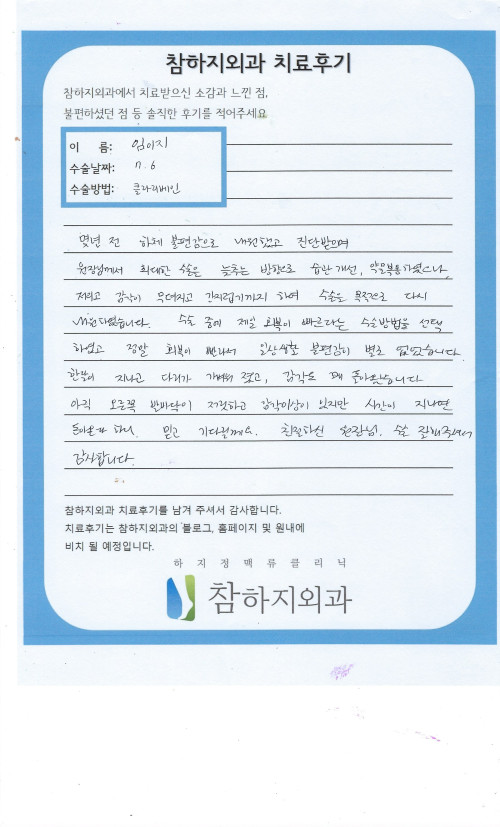 참하지외과 치료후기
참하지외과에서 치료받으신 소감과 느낀 점,
불편하셨던 점 등 솔직한 후기를 적어주세요
이 름: 임이지
수술날짜: 7. 6
수술방법: 클라리베인
몇년 전 하체 불편감으로 내원했고 진단받으며
원장님께서 최대한 수술은 늦추는 방향으로 습관 개선, 약물복용하였으나,
저리고 감각이 무뎌지고 간지럽기까지 하여 수술을 목적으로 다시
내원하였습니다. 수술 중에 제일 회복이 빠르다는 수술방법을 선택
하였고 정말 회복이 빨라서 일상생활 불편감이 별로 없었습니다.
한달이 지나고 다리가 가벼워 졌고, 감각도 꽤 돌아왔습니다
아직 오른쪽 발바닥이 저릿하고 감각이상이 있지만 시간이 지나면
돌아온다 하니, 믿고 기다릴께요. 친절하신 원장님, 수술 잘해주셔서
감사합니다.
참하지외과 치료후기를 남겨 주셔서 감사합니다.
치료후기는 참하지외과의 블로그, 홈페이지 및 원내에
비치 될 예정입니다.
하지정맥류클리닉
참하지외과